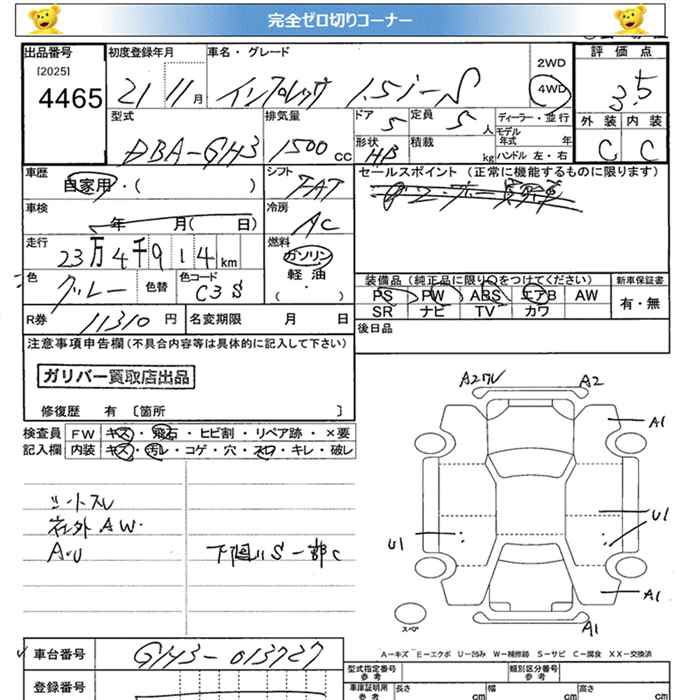 完全ゼロ切りコーナー
出品番号 初度登録年月 車名・グレード 2WD 評価点
[2025]
4465 21 11月 インプレッサ 1.5i-S 4WD 3.5
型式 排気量 ドア 5 定員 5人 ディーラー・並行 外装 内装
モデル年式 年
DBA-GH3 1500cc 形状 HB 積載 kg ハンドル 左・右 C C
車歴 シフト セールスポイント(正常に機能するものに限ります)
自家用・( ) FAT
車検 冷房
年 月( 日) AC
走行 燃料
23万4千914km ガソリン
軽油
(・)
色 色替 色コード 装備品(純正品に限り〇をつけてください) 新車保証書
グレー C3S PS PW ABS エアB AW 有・無
SR ナビ TV カワ
R券 11310円 名変期限 月 日 後日品
注意事項申告欄(不具合内容等は具体的に記入して下さい)
ガリバー買取店出品
修復歴 有〔箇所 〕
検査員 FW キズ・飛石・ヒビ割・リペア跡・×要
記入欄 内装 キズ・汚レ・コゲ・穴・スレ・キレ・破レ
シートスレ
社外AW.
A・U 下廻りS一部C
A2 A2
A1
U1
U1
A1
A1
スペア
A-キズ E-エクボ U-凹み W-補修跡 S-サビ C-腐食 XX-交換済
車台番号 GH3-013727
型式指定番号 類別区分番号
参考 参考
登録番号 車庫証明用 長さ cm 幅 cm 高さ cm
参考